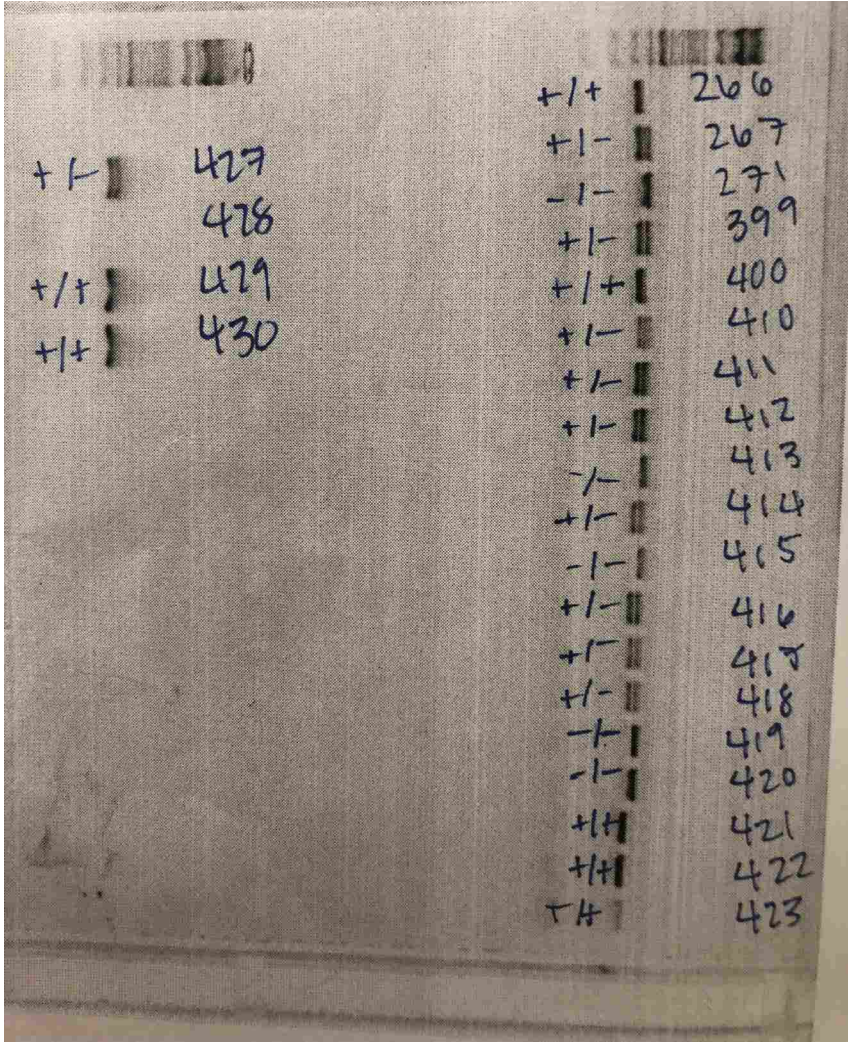 +/- 427
428
+/+ 429
+/+ 430
+/+ 266
+/- 267
-/- 271
+/- 399
+/+ 400
+/- 410
+/- 411
+/- 412
-/- 413
+/- 414
-/- 415
+/- 416
+/- 417
+/- 418
-/- 419
-/- 420
+/+ 421
+/+ 422
+/+ 423